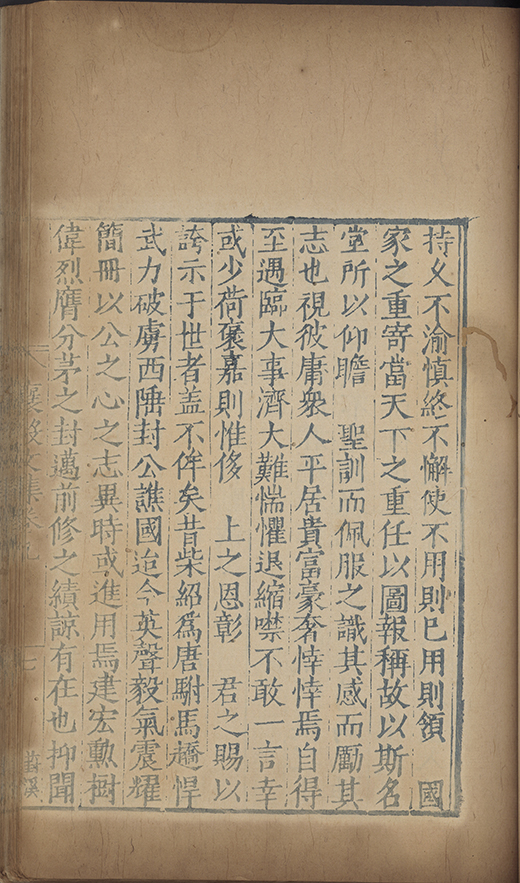 持乂不渝慎終不懈使不用則已用則領　國
家之重寄當天下之重任以圖報稱故以斯名
堂所以仰瞻　聖訓而佩服之識其感而勵其
志也視彼庸衆人平居貴富豪奢悻悻焉自得
至遇臨大事濟大難惴懼退縮噤不敢一言幸
或少荷褒嘉則惟侈　上之恩彰　君之賜以
誇示于世者盖不侔矣昔柴紹爲唐駙馬趫悍
武力破虜西陲封公譙國迨今英聲毅氣震耀
簡冊以公之心之志異時或進用焉建宏勳樹
偉烈膺分茅之封邁前修之績諒有在也抑聞
襄毅文集卷九